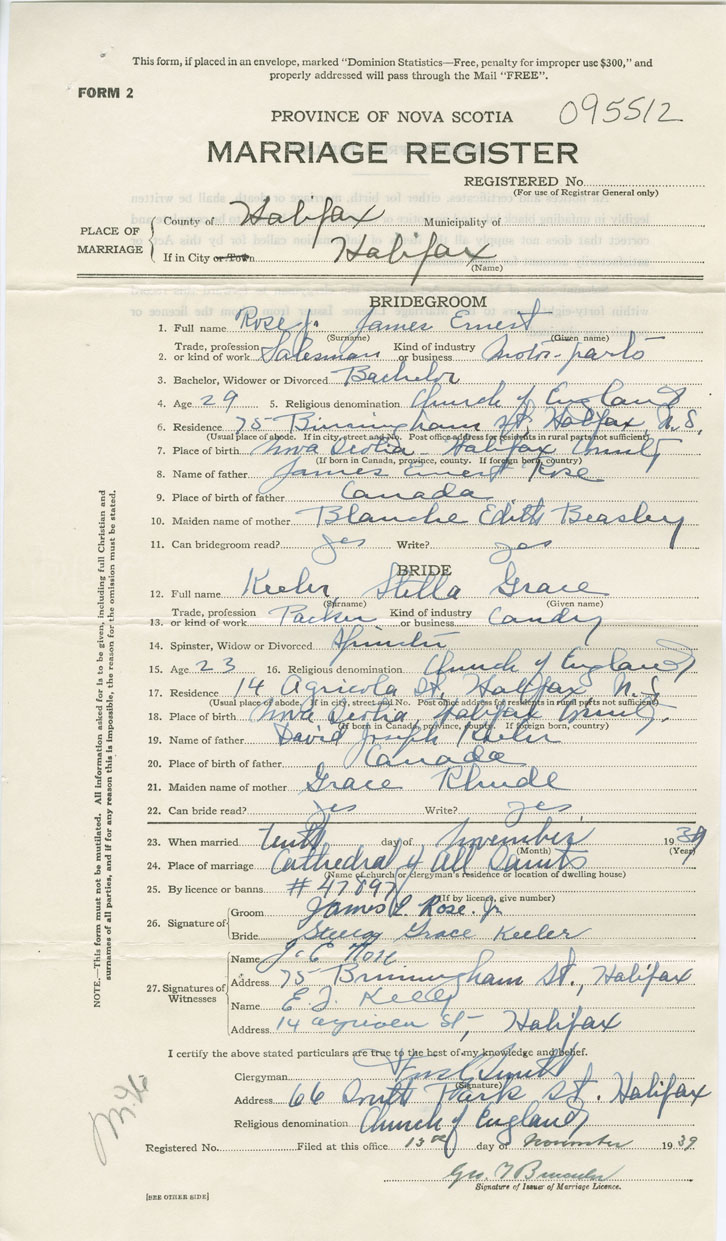 This form, if placed in an envelope, marked "Dominion Statistics—Free, penalty for improper use $300," and
properly addressed will pass through the Mail "FREE".
FORM 2
PROVINCE OF NOVA SCOTIA
095512
MARRIAGE REGISTER
REGISTERED No.
(For use of Registrar General only)
PLACE OF MARRIAGE
County of Halifax Municipality of
If in City or Town Halifax
(Name)
BRIDEGROOM
1. Full name Rose jr. James Ernest
(Surname) (Given name)
Trade, profession Kind of industry
2. or kind of work Salesman or business Motor-parts
3. Bachelor, Widower or Divorced Bachelor
4. Age 29 5. Religious denomination Church of England
6. Residence 75 Birmingham St, Halifax, N.S.
(Usual place of abode. If in city, street and No. Post office address for residents in rural parts not sufficient)
7. Place of birth Nova Scotia Halifax County
(If born in Canada, province, county. If foreign born, country)
8. Name of father James Ernest Rose
9. Place of birth of father Canada
10. Maiden name of mother Blanche Edith Beasley
11. Can bridegroom read? yes Write? yes
BRIDE
12. Full name Keeler, Stella Grace
(Surname) (Given name)
Trade, profession Kind of industry
13. or kind of work Packer or business Candy
14. Spinster, Widow or Divorced Spinster
15. Age 23 16. Religious denomination Church of England
17. Residence 14 Agricola St, Halifax N.S.
(Usual place of abode. If in city, street and No. Post office address for residents in rural parts not sufficient)
18. Place of birth Nova Scotia, Halifax County.
(If born in Canada, province, county. If foreign born, country)
19. Name of father David Joseph Keeler
20. Place of birth of father Canada
21. Maiden name of mother Grace Rhude
22. Can bride read? yes Write? yes,
23. When married tenth day of November 1939
(Month) (Year)
24. Place of marriage Cathedral of All Saints
(Name of church or clergyman's residence or location of dwelling house)
25. By licence or banns #47897
(If by licence, give number)
26. Signature of
Groom James E. Rose. Jr
Bride Stella Grace Keeler
27. Signatures of Witnesses
Name J. E. Rose
Address 75 Birmingham St., Halifax
Name E. J.
Address 14 Agricola St, Halifax
I certify the above stated particulars are true to the best of my knowledge and belief.
Clergyman Smith
(Signature)
Address 66 South Park St. Halifax
Religious denomination Church of England
Registered No. Filed at this office 13th day of November 1939.
Geo.
Signature of Issuer of Marriage Licence.
[SEE OTHER SIDE]
NOTE.—This form must not be mutilated. All information asked for is to be given, including full Christian and
surnames of all parties, and if for any reason this is impossible, the reason for the omission must be stated.